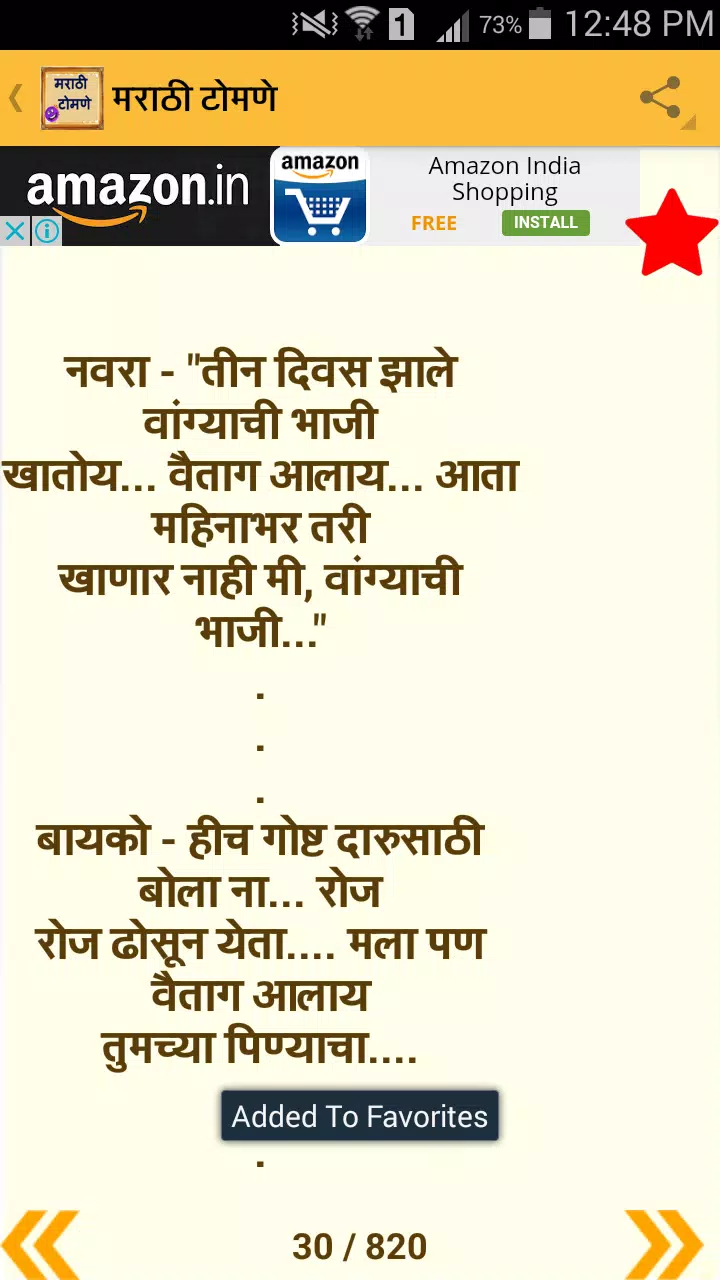 1 73% 12:48 PM
मराठी
टोमणे
मराठी टोमणे
amazon.in
amazon
Amazon India
Shopping
FREE INSTALL
नवरा - "तीन दिवस झाले
वांग्याची भाजी
खातोय... वैताग आलाय... आता
महिनाभर तरी
खाणार नाही मी, वांग्याची
भाजी..."
.
.
.
बायको - हीच गोष्ट दारुसाठी
बोला ना... रोज
रोज ढोसून येता.... मला पण
वैताग आलाय
तुमच्या पिण्याचा....
Added To Favorites
.
30 / 820